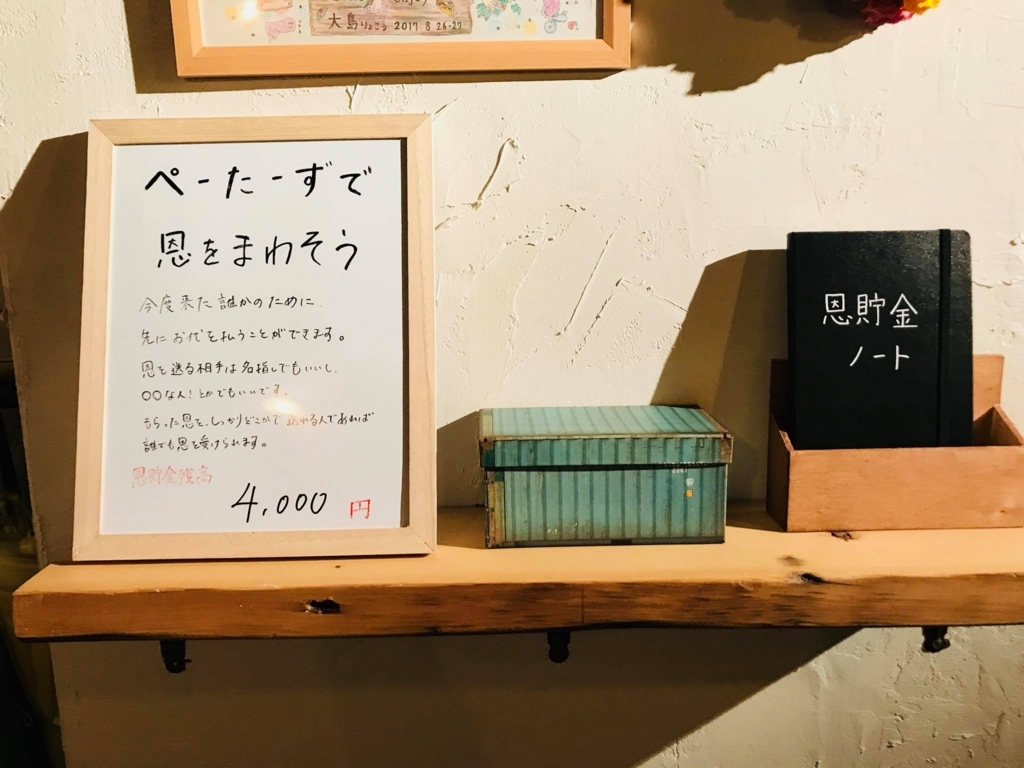 大島りょこう 2017 8 26-27
ぺーたーずで
恩をまわそう
今度来た誰かのために
先にお代を払うことができます。
恩を送る相手は名指しでもいいし、
○○な人!とかでもいいです。
もらった恩を、しっかりどこかで送れる人であれば
誰でも恩を受けられます。
恩貯金残高
4,000 円
恩貯金
ノート